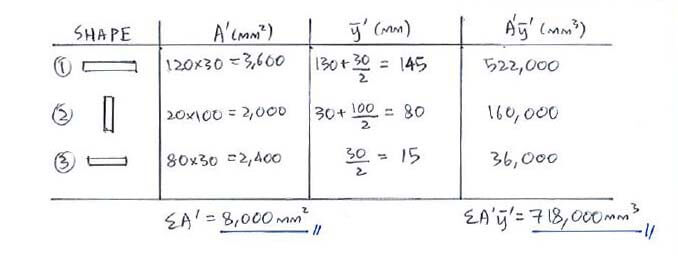 SHAPE A' (mm²) ȳ' (mm) A'ȳ' (mm³)
① 120×30 = 3,600 130 + 30/2 = 145 522,000
② 20×100 = 2,000 30 + 100/2 = 80 160,000
③ 80×30 = 2,400 30/2 = 15 36,000
ΣA' = 8,000 mm² ΣA'ȳ' = 718,000 mm³